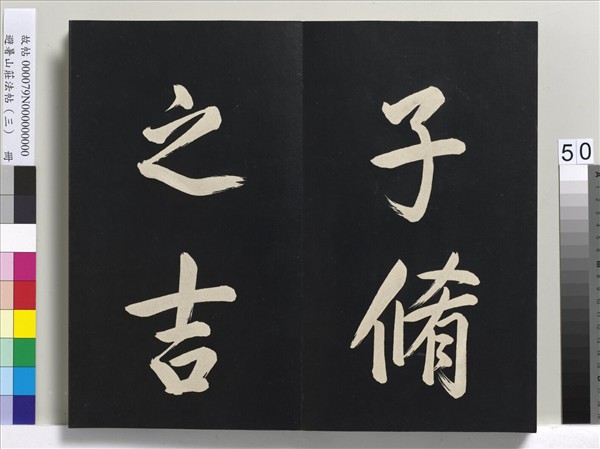 子脩
之吉
故帖 000079N000000000
避暑山莊法帖（三） 冊
50